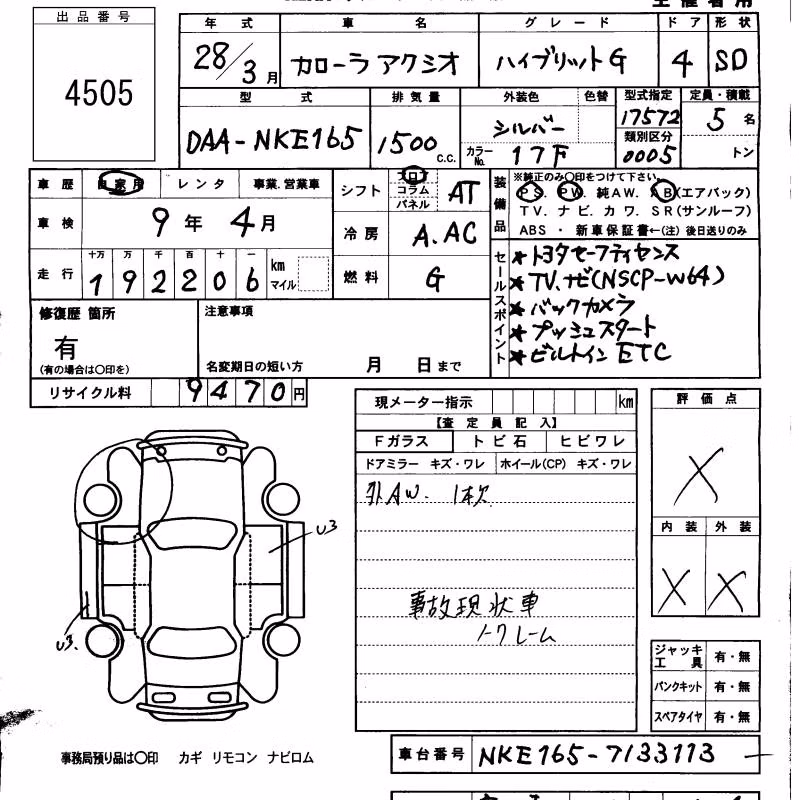 出品番号
4505
年式 車名 グレード ドア 形状
28/3月 カローラ アクシオ ハイブリットG 4 SD
型式 排気量 外装色 色替 型式指定 定員・積載
DAA-NKE165 1500 c.c. シルバー 17572 5名
カラーNo. 17F 類別区分 0005 トン
車歴 自家用 レンタ 事業.営業車
車検 9年4月
走行 十万 万 千 百 十 一 km マイル
192206
シフト フロア コラム パネル AT
冷房 A.AC
燃料 G
装備品
※純正のみ〇印をつけて下さい。
PS. PW. 純AW. AB(エアバック)
TV. ナビ. カワ. SR(サンルーフ)
ABS ・ 新車保証書←(注)後日送りのみ
セールスポイント
★トヨタセーフティセンス
★TV、ナビ(NSCP-W64)
★バックカメラ
★プッシュスタート
★ビルトインETC
修復歴 箇所
有
(有の場合は〇印を)
注意事項
名変期日の短い方 月 日まで
リサイクル料 9470円
現メーター指示 km
【査定員記入】
Fガラス トビ石 ヒビワレ
ドアミラー キズ・ワレ ホイール(CP) キズ・ワレ
外AW. 1本欠
事故現状車
評価点
X
内装 外装
X X
U3
U3.
ジャッキ工具 有・無
パンクキット 有・無
スペアタイヤ 有・無
事務局預り品は〇印 カギ リモコン ナビロム
車台番号 NKE165-7133113